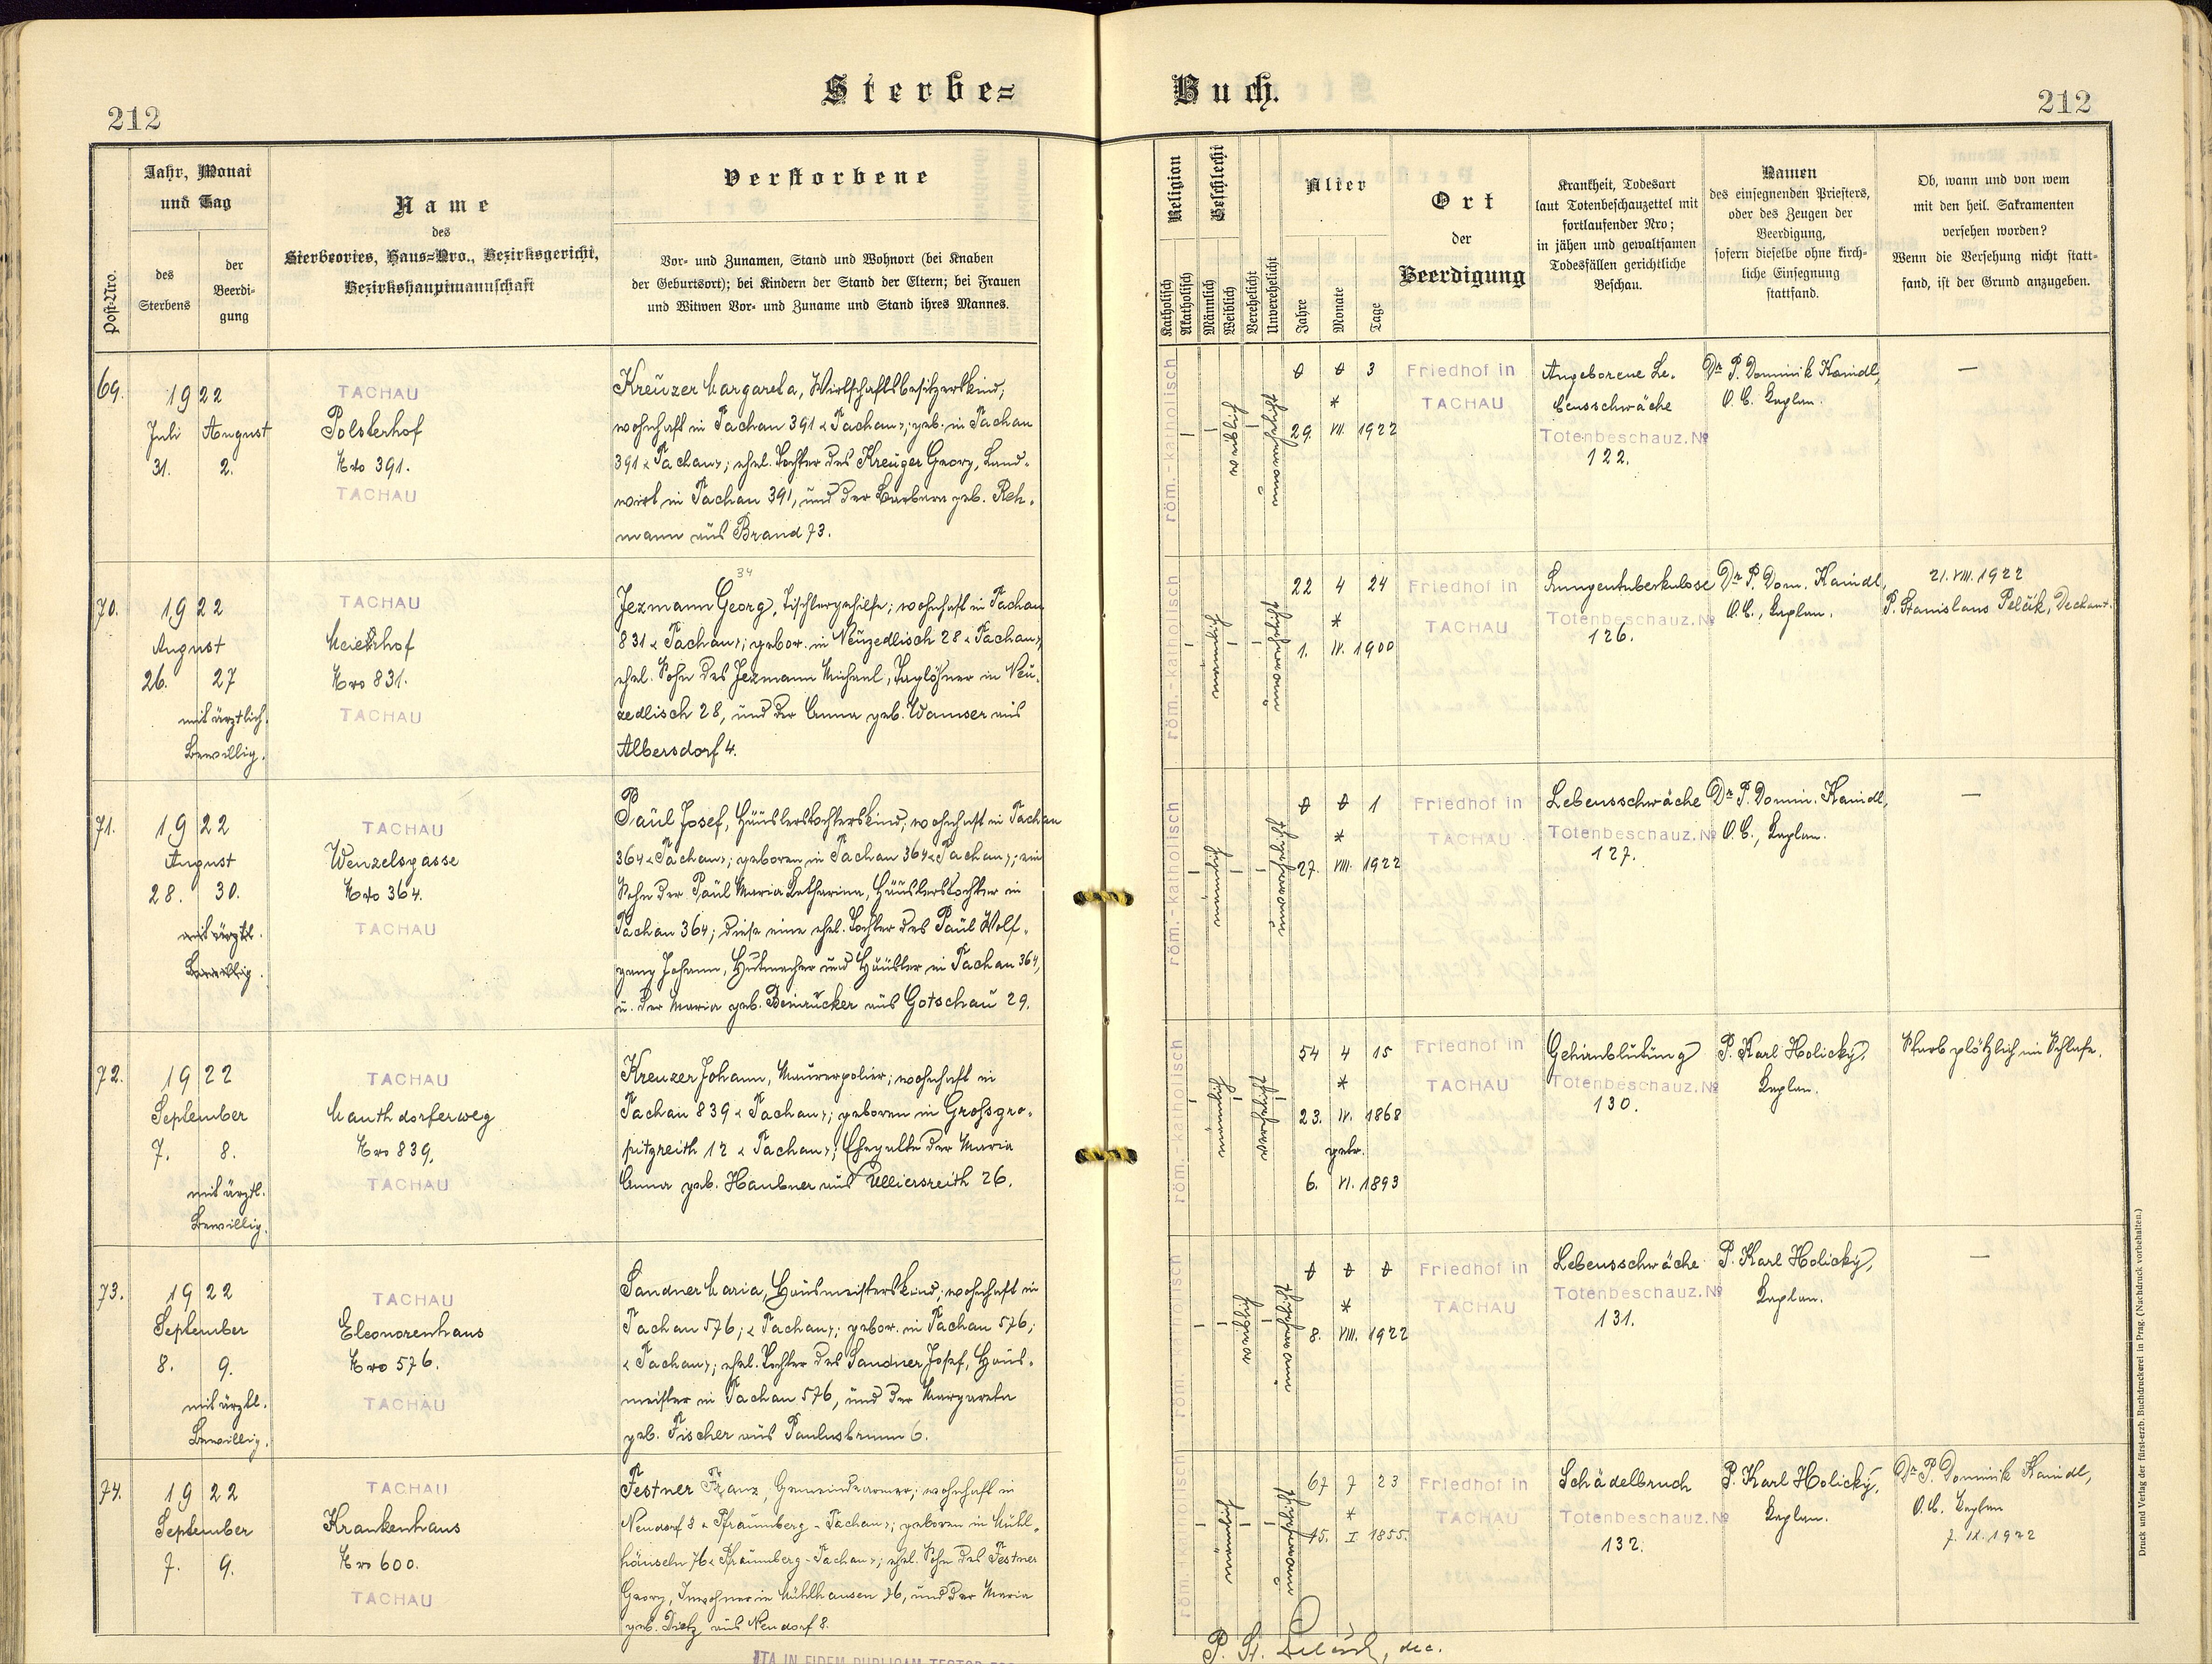 Sterbe=
Buch.
212
212
Post-Nro.
Jahr, Monat
und Tag
des
Sterbens
der
Beerdi-
gung
Name
des
Sterbeortes, Haus=Nro., Bezirksgericht,
Bezirkshauptmannschaft
Verstorbene
Vor- und Zunamen, Stand und Wohnort (bei Knaben
der Geburtsort); bei Kindern der Stand der Eltern; bei Frauen
und Witwen Vor- und Zuname und Stand ihres Mannes.
Religion
Katholisch
Akatholisch
Geschlecht
Männlich
Weiblich
Verehelicht
Unverehelicht
Alter
Jahre
Monate
Tage
Ort
der
Beerdigung
Krankheit, Todesart
laut Totenbeschauzettel mit
fortlaufender Nro;
in jähen und gewaltsamen
Todesfällen gerichtliche
Beschau.
Namen
des einsegnenden Priesters,
oder des Zeugen der
Beerdigung,
sofern dieselbe ohne kirch-
liche Einsegnung
stattfand.
Ob, wann und von wem
mit den heil. Sakramenten
versehen worden?
Wenn die Versehung nicht statt-
fand, ist der Grund anzugeben.
69.
1922
Juli August
31. 2.
TACHAU
Polsterhof
Nro 391.
TACHAU
Kreuzer Margareta, Wirtschaftsbesitzerskind;
wohnhaft in Tachau 391 "Tachau"; geb. in Tachau
391 "Tachau"; ehel. Tochter des Kreuzer Georg, Land-
wirt in Tachau 391, und der Barbara geb. Reh-
mann aus Brand 73.
röm.-katholisch
weiblich
0 0 3
*
29. VII. 1922
Friedhof in
TACHAU
Angeborene Le-
bensschwäche
Totenbeschauz. No
122.
Dr P. Dominik Kaindl,
O. C. Kaplan.
—
70.
1922
August
26. 27
mit ärztlich.
Bewillig.
TACHAU
Meierhof
Nro 831.
TACHAU
34
Jezmann Georg, Tischlergehilfe; wohnhaft in Tachau
831 "Tachau"; gebor. in Neuzedlisch 28 "Tachau";
ehel. Sohn des Jezmann Michael, Taglöhner in Neu-
zedlisch 28, und der Anna geb. Wamser aus
Albersdorf 4.
röm.-katholisch
männlich
22 4 24
*
1. IV. 1900
Friedhof in
TACHAU
Lungentuberkulose
Totenbeschauz. No
126.
Dr P. Dom. Kaindl,
O. C., Kaplan.
21. VIII. 1922
P. Stanislaus Pelčik, Dechant.
71.
1922
August
28. 30.
mit ärztl.
Bewillig.
TACHAU
Wenzelsgasse
Nro 364.
TACHAU
Paul Josef, Häuslerstochterskind; wohnhaft in Tachau
364 "Tachau"; geboren in Tachau 364 "Tachau"; ein
Sohn der Paul Maria Katharina, Häuslerstochter in
Tachau 364; diese eine ehel. Tochter des Paul Wolf-
gang Johann, Hutmacher und Häusler in Tachau 364,
u. der Maria geb. Beinrucker aus Gotschau 29.
röm.-katholisch
männlich
0 0 1
*
27. VIII. 1922
Friedhof in
TACHAU
Lebensschwäche
Totenbeschauz. No
127.
Dr P. Domin. Kaindl,
O. C., Kaplan.
—
72.
1922
September
7. 8.
mit ärztl.
Bewillig.
TACHAU
Mauthdorferweg
Nro 839.
TACHAU
Kreuzer Johann, Maurerpolier; wohnhaft in
Tachau 839 "Tachau"; geboren in Grossgro-
pitzreith 12 "Tachau"; Ehegatte der Maria
Anna geb. Haubner aus Ulliersreith 26.
röm.-katholisch
männlich
54 4 15
*
23. IV. 1868
getr.
6. VI. 1893
Friedhof in
TACHAU
Gehirnblutung
Totenbeschauz. No
130.
P. Karl Holický,
Kaplan.
Starb plötzlich im Schlafe.
73.
1922
September
8. 9.
mit ärztl.
Bewillig.
TACHAU
Eleonorenhaus
Nro 576.
TACHAU
Sandner Maria, Hausmeisterskind; wohnhaft in
Tachau 576; "Tachau"; gebor. in Tachau 576;
"Tachau"; ehel. Tochter des Sandner Josef, Haus-
meister in Tachau 576, und der Margareta
geb. Fischer aus Paulusbrunn 6.
röm.-katholisch
weiblich
0 0 0
*
8. VIII. 1922
Friedhof in
TACHAU
Lebensschwäche
Totenbeschauz. No
131.
P. Karl Holický,
Kaplan.
—
74.
1922
September
7. 9.
TACHAU
Krankenhaus
Nro 600.
TACHAU
Festner Franz, Gemeindearmer; wohnhaft in
Neudorf 8 "Pfraumberg-Tachau"; geboren in Mühl-
häuseln 76 "Pfraumberg-Tachau"; ehel. Sohn des Festner
Georg, Inwohner in Mühlhausen 76, und der Maria
geb. Dietz aus Neudorf 8.
röm.-katholisch
männlich
67 7 23
*
15. I 1855.
Friedhof in
TACHAU
Schädelbruch
Totenbeschauz. No
132.
P. Karl Holický,
Kaplan.
Dr P. Dominik Kaindl,
O. C. Kaplan
7. IX. 1922
P. St. Pelčik, dec.
Druck und Verlag der fürst-erzb. Buchdruckerei in Prag. (Nachdruck vorbehalten.)